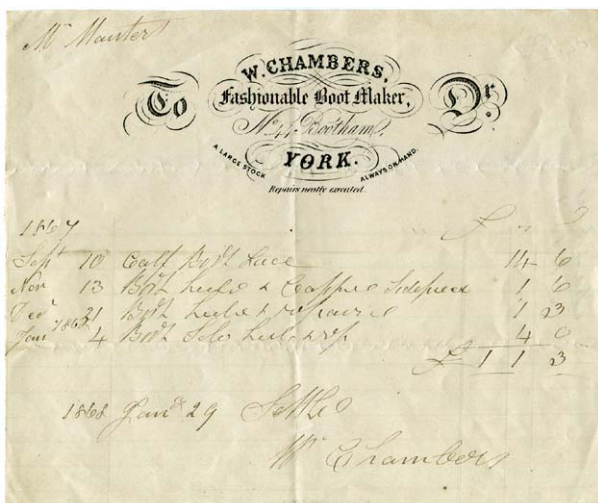 Mr
W. CHAMBERS,
To Fashionable Boot Maker, Dr.
No. 44, Bootham,
YORK.
A LARGE STOCK ALWAYS ON HAND.
Repairs neatly executed.
1867 £
Sept 10 Calf Boot Lace 14 6
Nov 13 Boot heeled & Capped Sidepiece 1 6
Dec 21 Boot heeled & repaired 1 3
Jany 1868 4 Boots Soled heeled 4 0
£ 1 1 3
1868 Jany 29 Settled
Wm Chambers